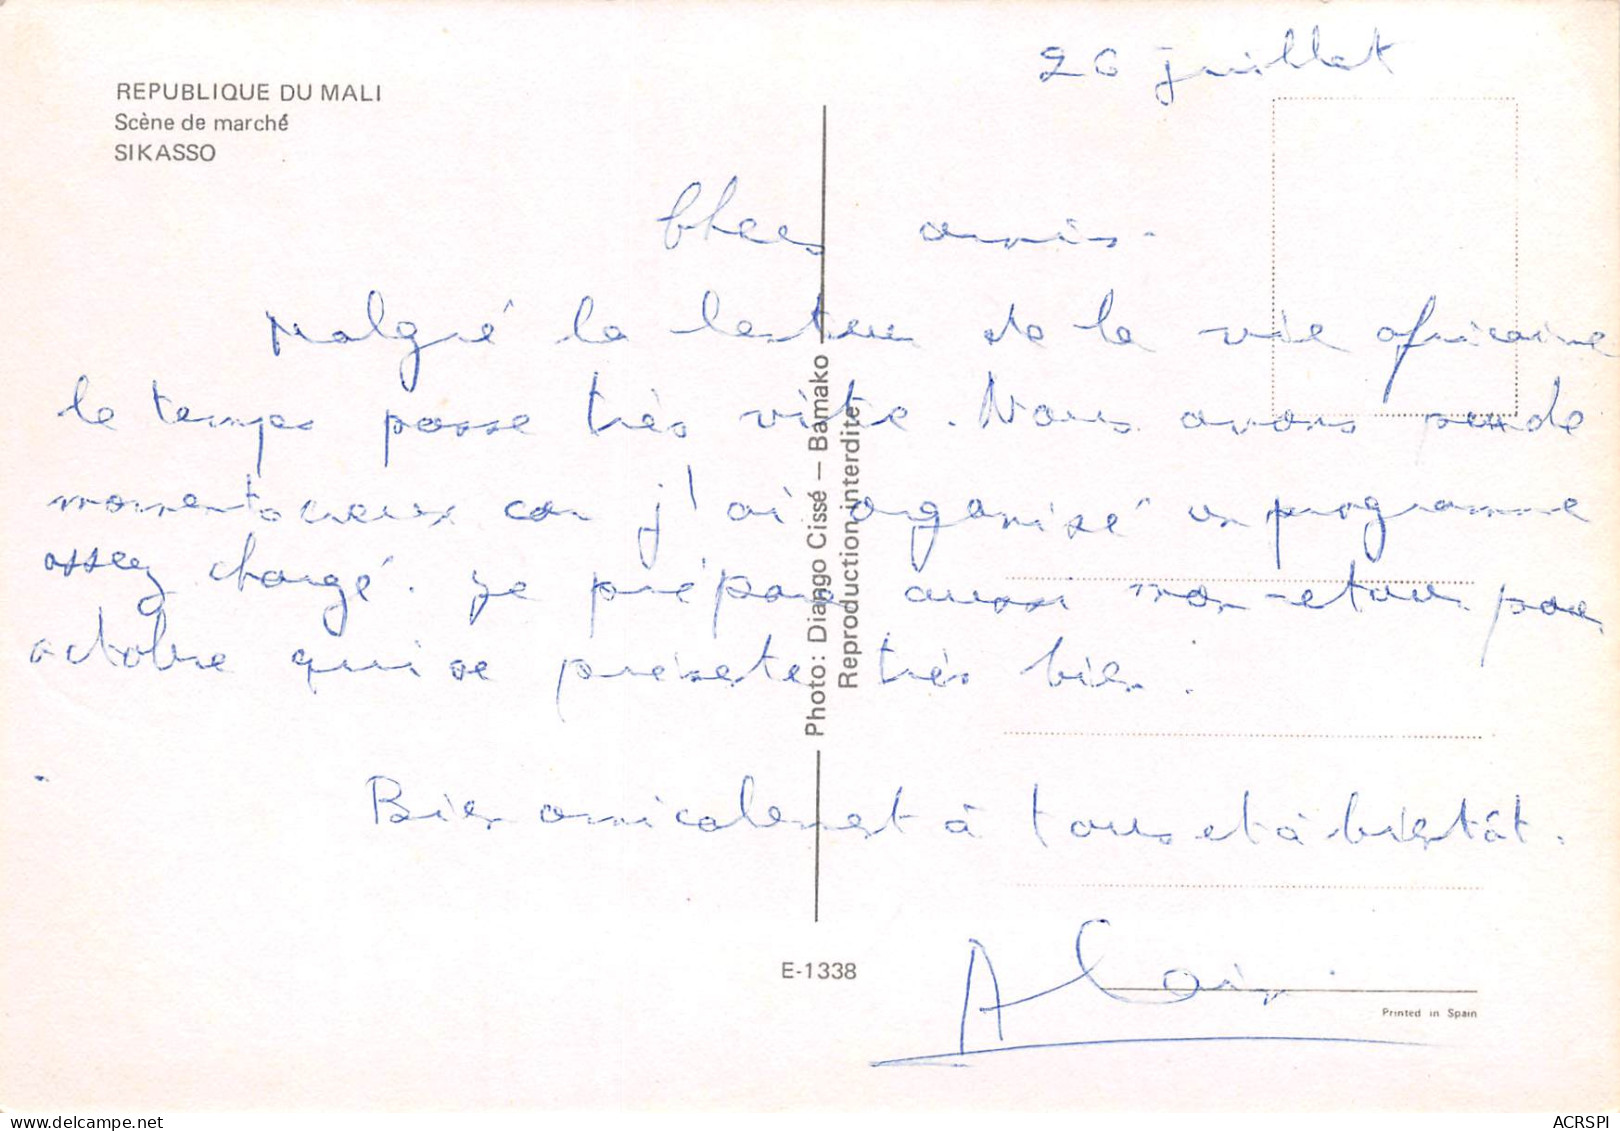 26 juillet
REPUBLIQUE DU MALI
Scène de marché
SIKASSO
Chers amis.
Malgré la lenteur de la vie africaine
le temps passe très vite. Nous avons peu de
moments creux car j'ai organisé un programme
assez chargé. Je prépare aussi mon retour pour
octobre qui se présente très bien.
Bien amicalement à tous et à bientôt.
Alain
Photo: Diango Cissé – Bamako
Reproduction interdite
E-1338
Printed in Spain
ACRSPI